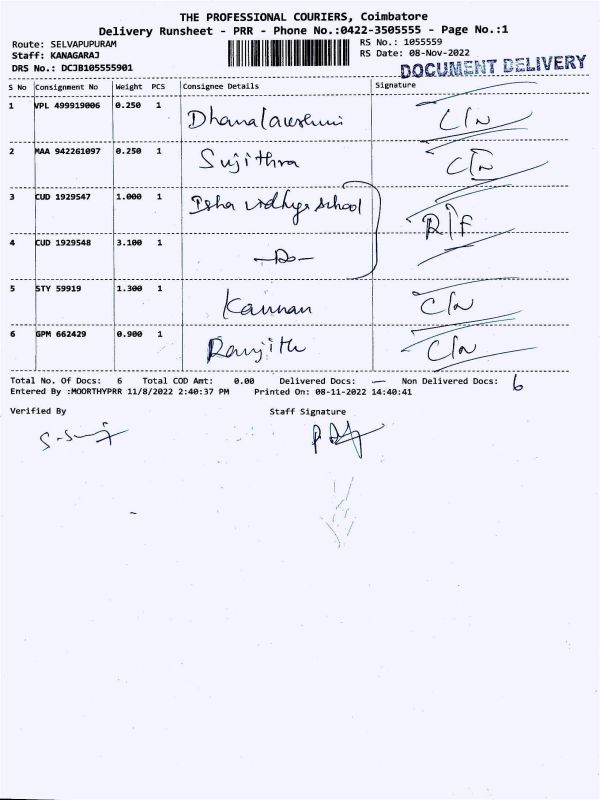 THE PROFESSIONAL COURIERS, Coimbatore
Delivery Runsheet - PRR - Phone No.:0422-3505555 - Page No.:1
Route: SELVAPUPURAM RS No.: 1055559
Staff: KANAGARAJ RS Date: 08-Nov-2022
DRS No.: DCJB105555901 DOCUMENT DELIVERY
S No Consignment No Weight PCS Consignee Details Signature
1 VPL 499919006 0.250 1 Dhanalakshmi C/N
2 MAA 942261097 0.250 1 Sujithra C/N
3 CUD 1929547 1.000 1 Isha vidhya school R/F
4 CUD 1929548 3.100 1 -Do-
5 STY 59919 1.300 1 Kannan C/N
6 GPM 662429 0.900 1 Ranjith C/N
Total No. Of Docs: 6 Total COD Amt: 0.00 Delivered Docs: — Non Delivered Docs: 6
Entered By :MOORTHYPRR 11/8/2022 2:40:37 PM Printed On: 08-11-2022 14:40:41
Verified By Staff Signature